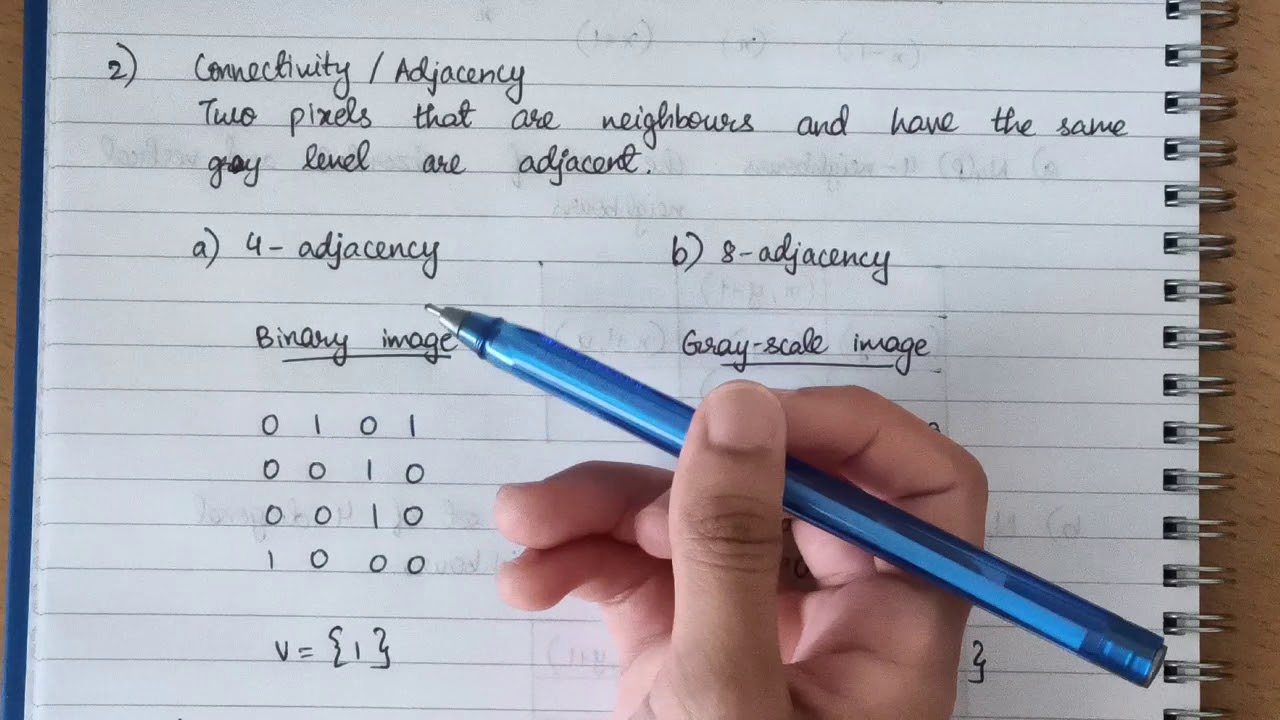 2) Connectivity / Adjacency
Two pixels that are neighbours and have the same
gray level are adjacent.
a) 4- adjacency b) 8-adjacency
Binary image Gray-scale image
0 1 0 1
0 0 1 0
0 0 1 0
1 0 0 0
V = {1} }